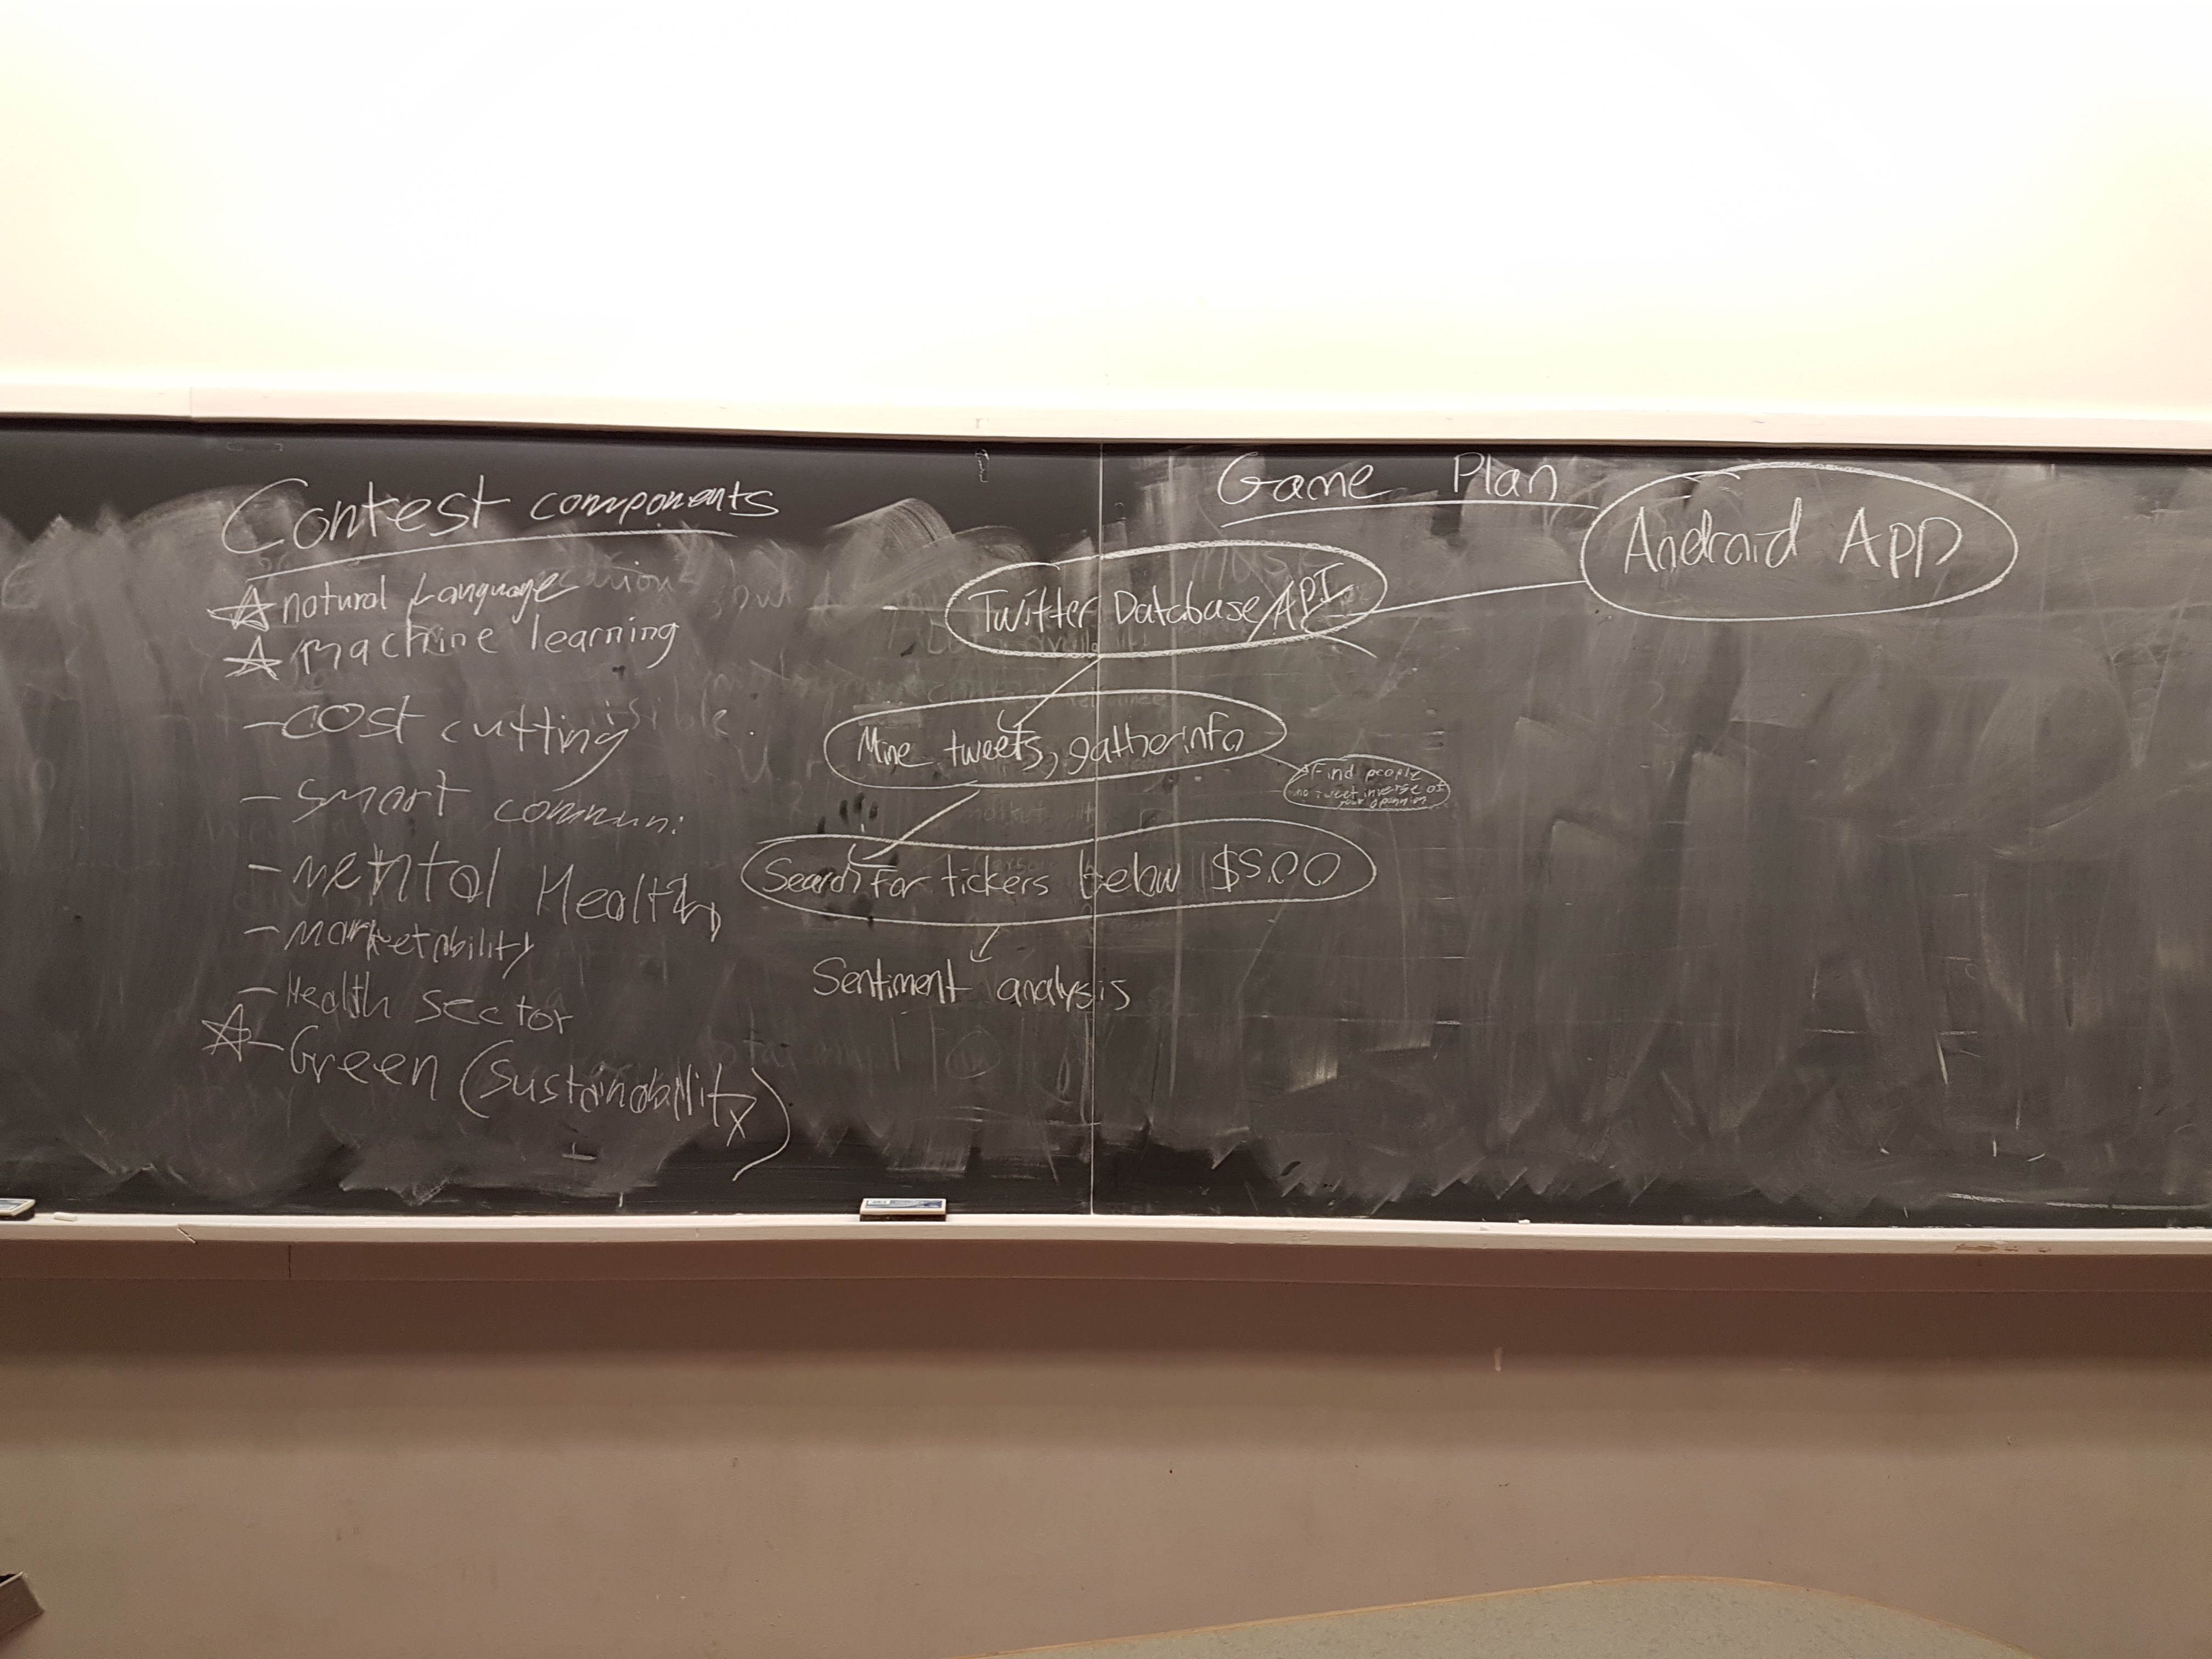 Contest components
natural Language
machine learning
-cost cutting
- smart commun:
- mental Health
- marketability
- Health sector
- Green (sustainability)
Game Plan
Android App
Twitter Database/API
Mine tweets, gather info
Find people
tweet inverse of
your opinnion
Search for tickers below $5.00
Sentiment analysis